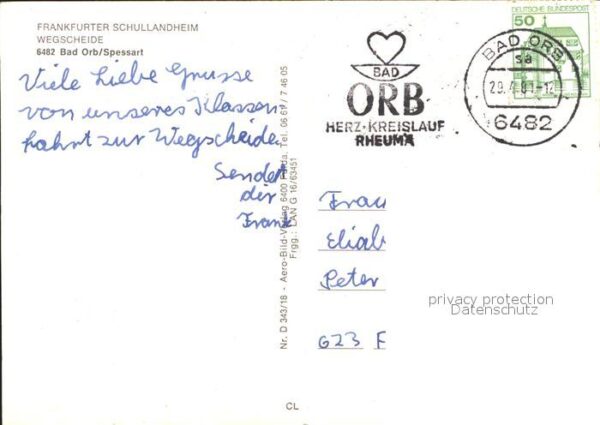 FRANKFURTER SCHULLANDHEIM
WEGSCHEIDE
6482 Bad Orb/Spessart
Viele liebe Grüsse
von unseres Klassen
fahrt zur Wegscheide.
Sendet
dir
Frank
Nr. D 343/18 - Aero-Bild-Verlag 6400 Fulda. Tel. 06 61 / 7 46 05
Frgg.: LAN G 16/63451
CL
BAD
ORB
HERZ·KREISLAUF
RHEUMA
BAD ORB
sa
6482
DEUTSCHE BUNDESPOST
50
Frau
Eliab
Peter
623 F
privacy protection
Datenschutz